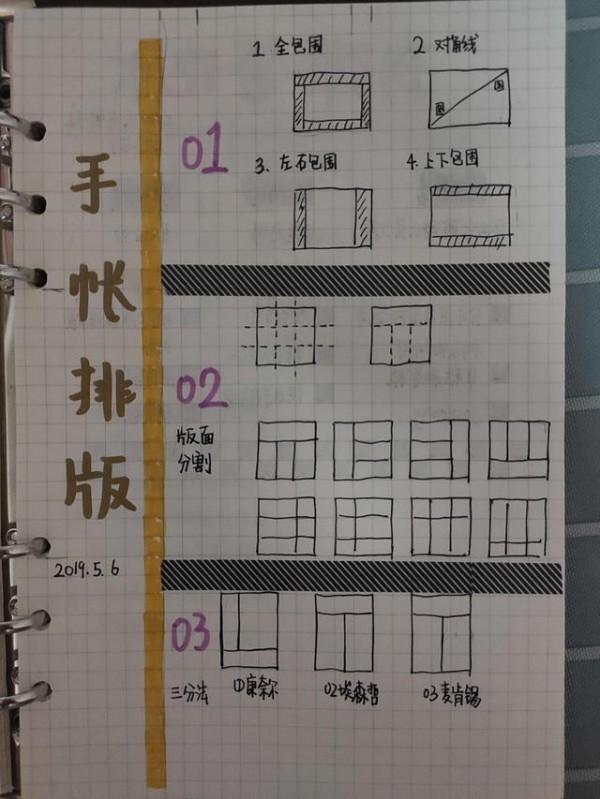 手帐排版
2019.5.6
01
1. 全包围
2 对角线
图
图
3. 左右包围
4. 上下包围
02
版面
分割
03
三分法
①康奈尔
02埃森哲
03麦肯锡